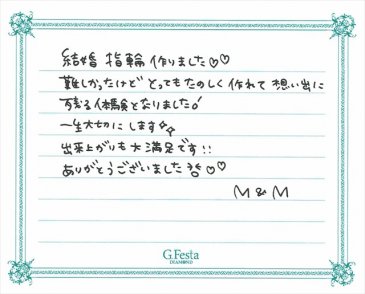 結婚 指輪 作りました♡♡
難しかったけど とってもたのしく 作れて 想い出に
残る体験となりました!
一生大切にします☆☆
出来上がりも大満足です!!
ありがとうございました ♡♡
M & M
G.Festa
DIAMOND